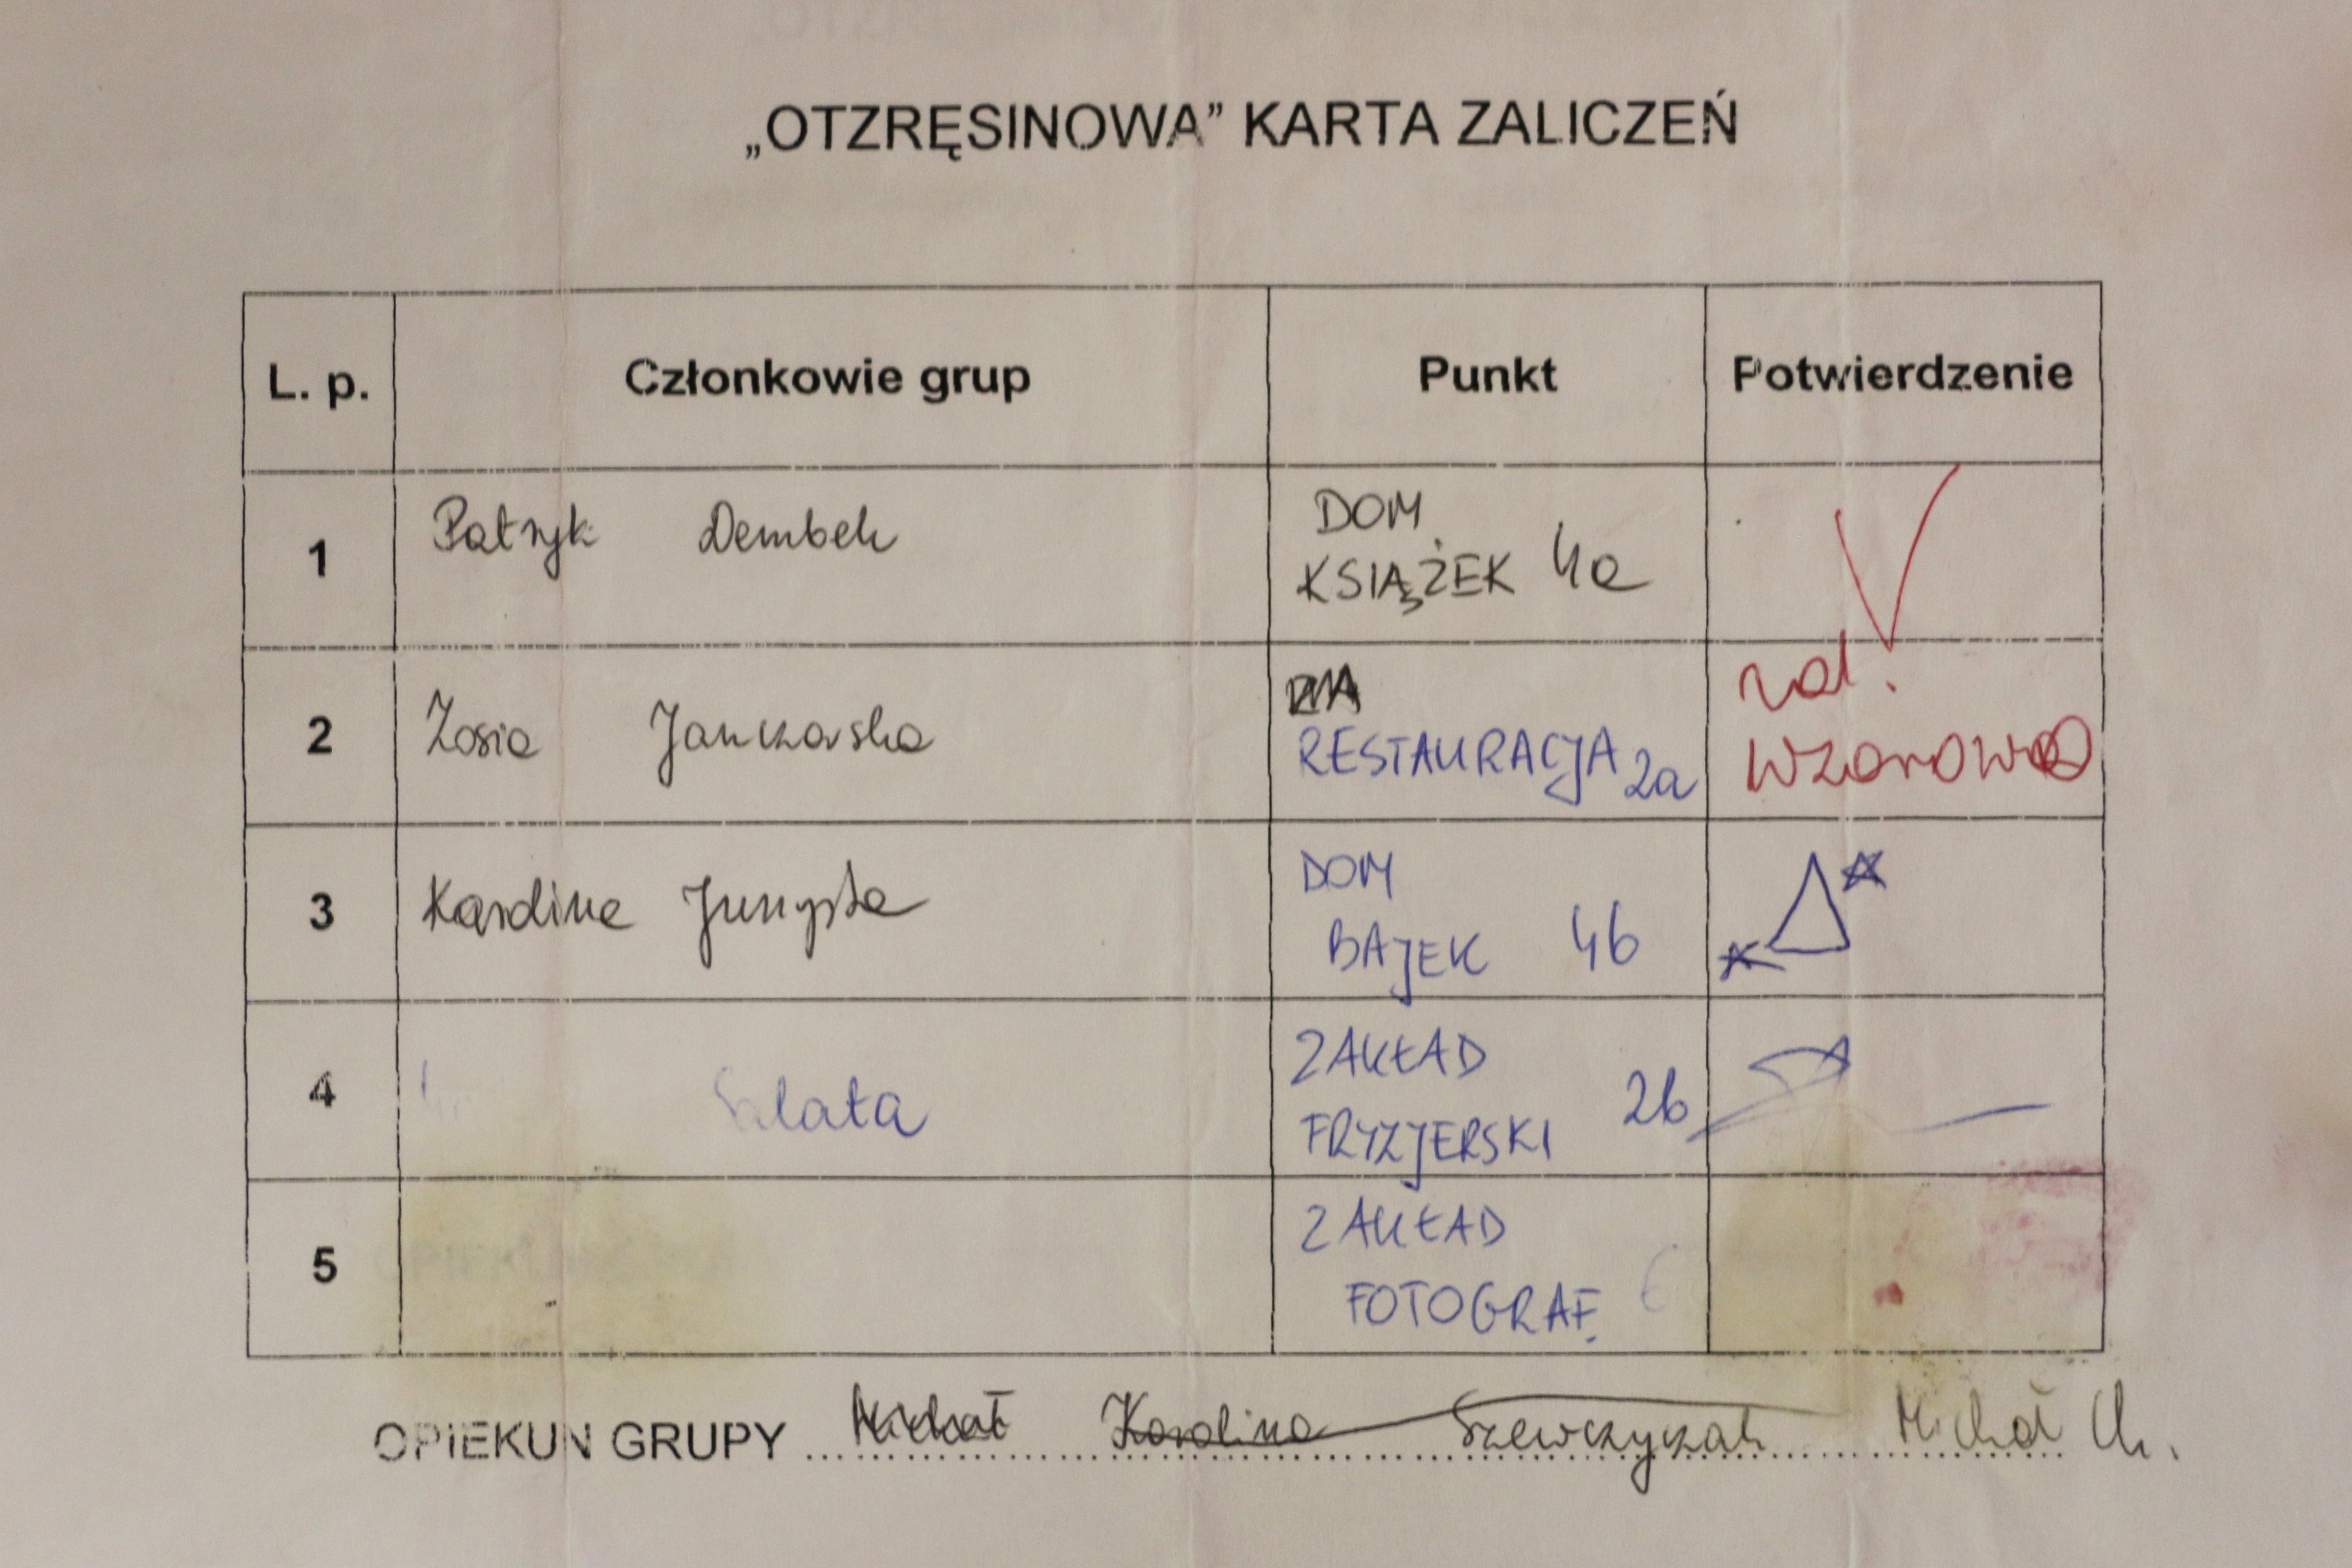 „OTZRĘSINOWA” KARTA ZALICZEŃ
L. p. Członkowie grup Punkt Potwierdzenie
1 Patryk Dembek DOM
KSIĄŻEK 4a
2 Zosia Janczarska zal.
RESTAURACJA 2a wzorowo
3 Karolina DOM
BAJEK 4b
4 ZAKŁAD
FRYZJERSKI 2b
5 ZAKŁAD
FOTOGRAF.
OPIEKUN GRUPY Michał Karolina Szewczyzak Michał Ch.